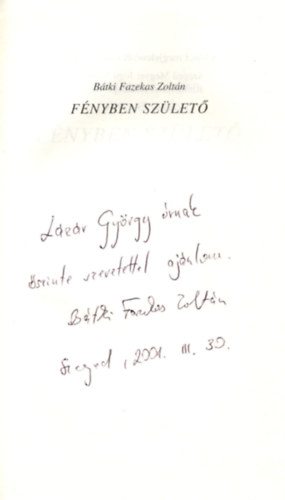 Bátki Fazekas Zoltán
FÉNYBEN SZÜLETŐ
Lázár György úrnak
őszinte szeretettel ajánlom.
Bátki Fazekas Zoltán
Szeged, 2001. III. 30.